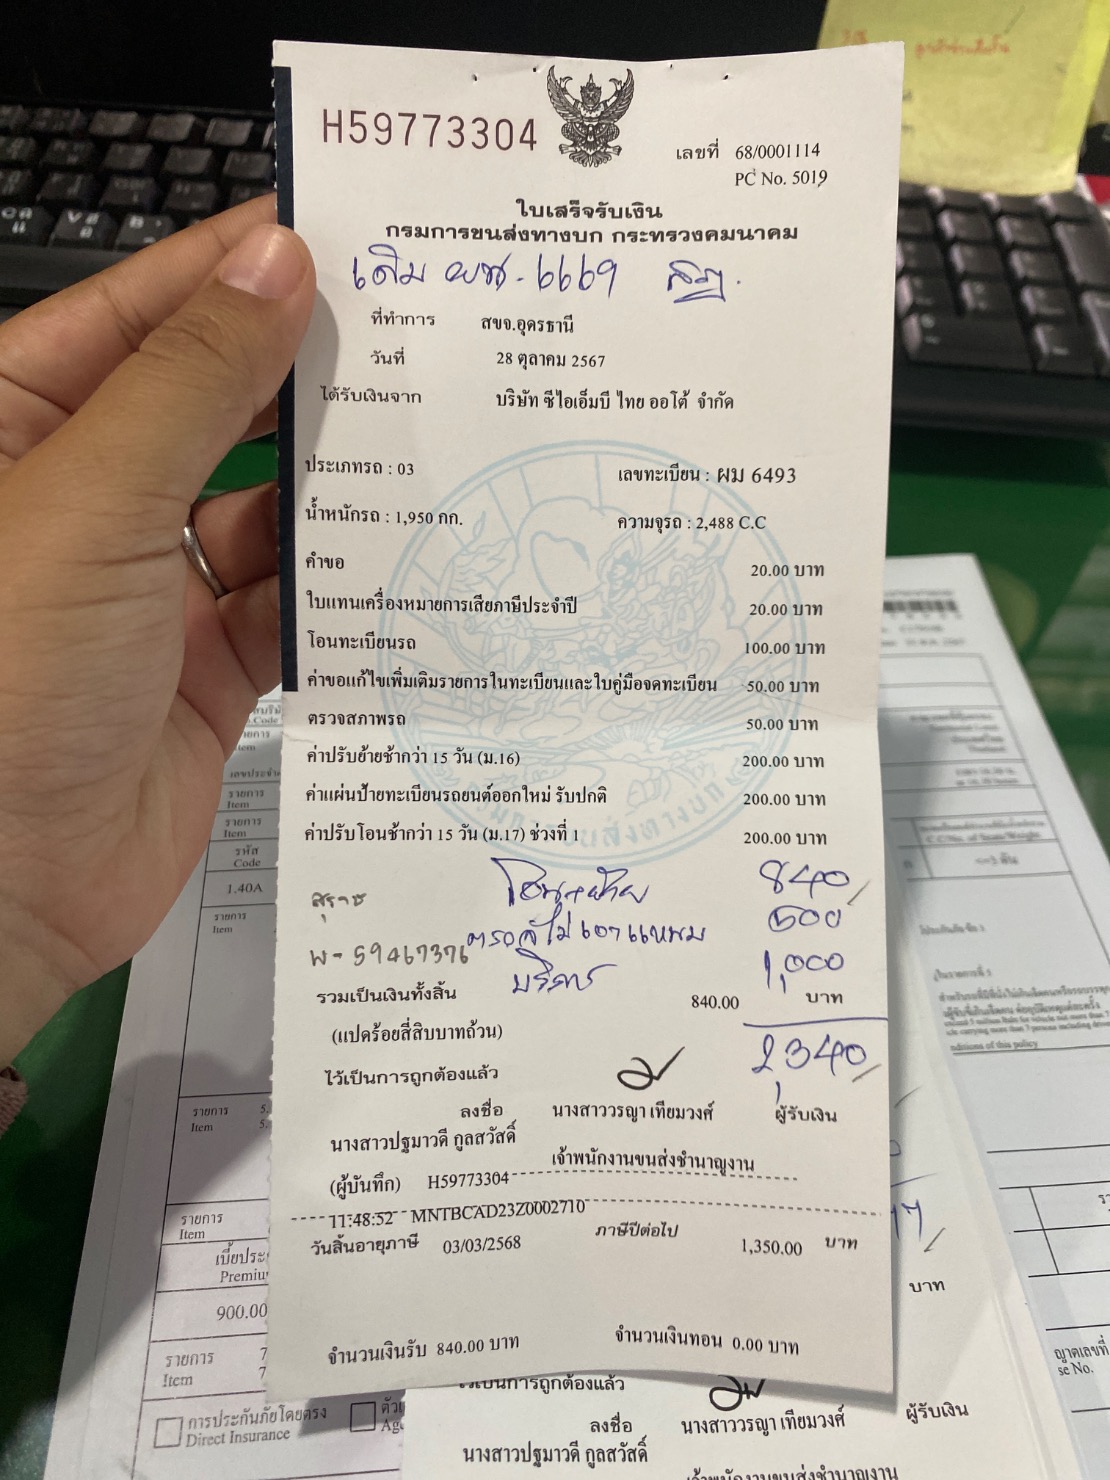 H59773304
เลขที่ 68/0001114
PC No. 5019
ใบเสร็จรับเงิน
กรมการขนส่งทางบก กระทรวงคมนาคม
เดิม ผน. 6669 สฎ.
ที่ทำการ สขจ.อุดรธานี
วันที่ 28 ตุลาคม 2567
ได้รับเงินจาก บริษัท ซีไอเอ็มบี ไทย ออโต้ จำกัด
ประเภทรถ : 03 เลขทะเบียน : ผม 6493
น้ำหนักรถ : 1,950 กก. ความจุรถ : 2,488 C.C
คำขอ 20.00 บาท
ใบแทนเครื่องหมายการเสียภาษีประจำปี 20.00 บาท
โอนทะเบียนรถ 100.00 บาท
ค่าขอแก้ไขเพิ่มเติมรายการในทะเบียนและใบคู่มือจดทะเบียน 50.00 บาท
ตรวจสภาพรถ 50.00 บาท
ค่าปรับย้ายช้ากว่า 15 วัน (ม.16) 200.00 บาท
ค่าแผ่นป้ายทะเบียนรถยนต์ออกใหม่ รับปกติ 200.00 บาท
ค่าปรับโอนช้ากว่า 15 วัน (ม.17) ช่วงที่ 1 200.00 บาท
กรมการขนส่งทางบก
โอน+ย้าย 840
500
พ-59467376
บริการ 1,000
รวมเป็นเงินทั้งสิ้น 840.00 บาท
(แปดร้อยสี่สิบบาทถ้วน)
2,340
ไว้เป็นการถูกต้องแล้ว
ลงชื่อ นางสาววรญา เทียมวงศ์ ผู้รับเงิน
นางสาวปฐมาวดี กูลสวัสดิ์
เจ้าพนักงานขนส่งชำนาญงาน
(ผู้บันทึก) H59773304
11:48:52 MNTBCAD23Z0002710
วันสิ้นอายุภาษี 03/03/2568 ภาษีปีต่อไป 1,350.00 บาท
จำนวนเงินรับ 840.00 บาท จำนวนเงินทอน 0.00 บาท
ไว้เป็นการถูกต้องแล้ว
ลงชื่อ นางสาววรญา เทียมวงศ์ ผู้รับเงิน
นางสาวปฐมาวดี กูลสวัสดิ์
เจ้าพนักงานขนส่งชำนาญงาน
รายการ
Item
รหัส
Code
1.40A
รายการ
Item
รายการ
Item
รายการ
Item
เบี้ยประ
Premiu
900.00
รายการ
Item
การประกันภัยโดยตรง
Direct Insurance
บาท
ญาตเลขที่
se No.
nditions of this policy